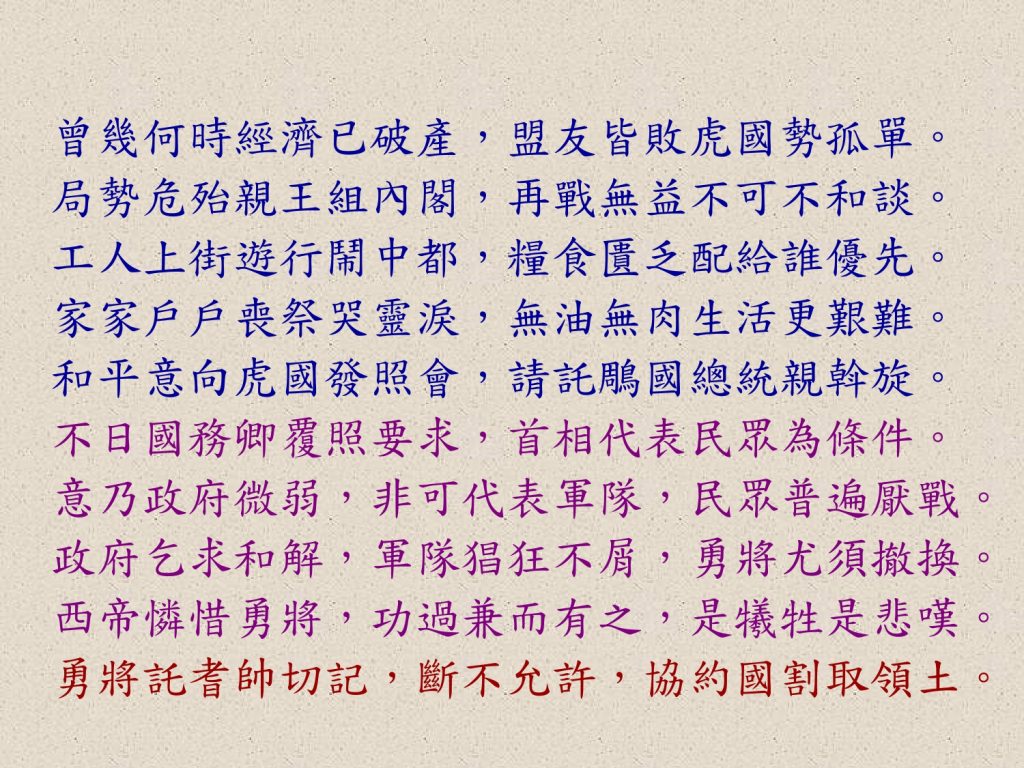 曾幾何時經濟已破產，盟友皆敗虎國勢孤單。
局勢危殆親王組內閣，再戰無益不可不和談。
工人上街遊行鬧中都，糧食匱乏配給誰優先。
家家戶戶喪祭哭靈淚，無油無肉生活更艱難。
和平意向虎國發照會，請託鵰國總統親斡旋。
不日國務卿覆照要求，首相代表民眾為條件。
意乃政府微弱，非可代表軍隊，民眾普遍厭戰。
政府乞求和解，軍隊猖狂不屑，勇將尤須撤換。
西帝憐惜勇將，功過兼而有之，是犧牲是悲嘆。
勇將託耆帥切記，斷不允許，協約國割取領土。